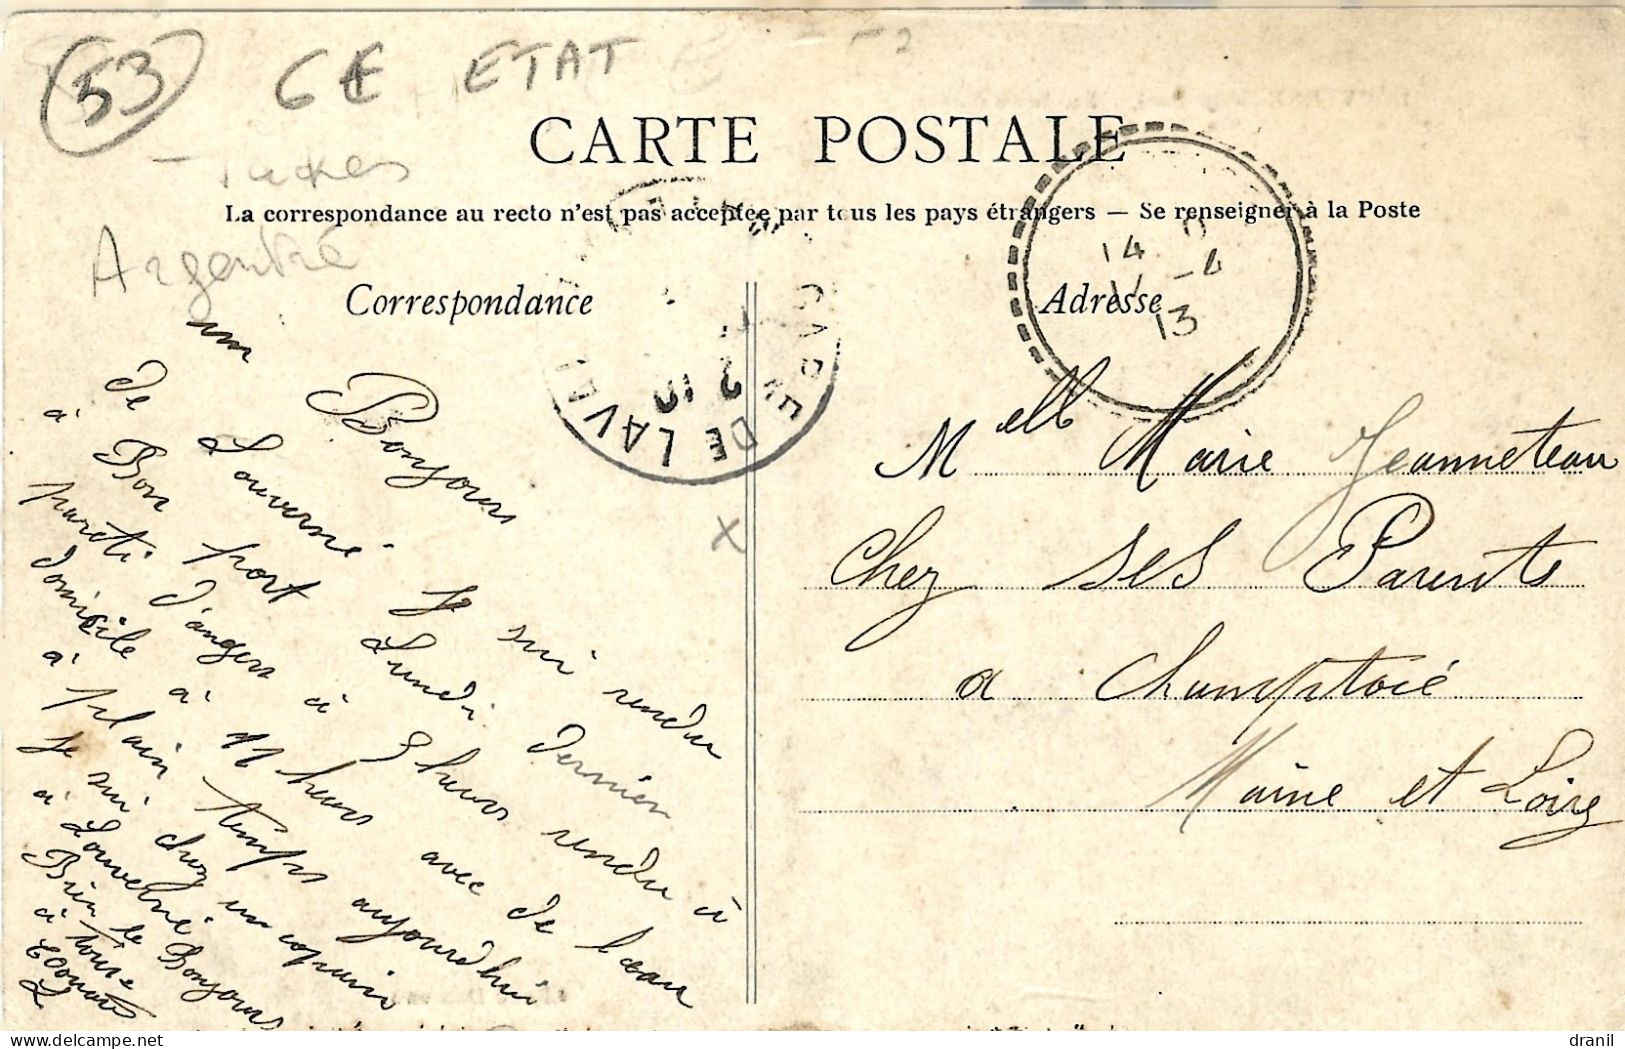 53
6E ETAT
CARTE POSTALE
La correspondance au recto n'est pas acceptée par tous les pays étrangers — Se renseigner à la Poste
Argentré
Correspondance
Adresse
GARE DE LAVAL
14
11 -4
13
un Bonjour
de Louverné Je sui rendu
à Bon port Lundi dernier
parti d'angers à 5 heures rendu à
domicile à 11 heures avec de l'eau
a plain temps aujourd'hui
Je sui chez un copain
à Louverné
Bien le Bonjour
à tous
Edouard
L
Melle Marie Jeanneteau
Chez ses Parents
a Champtocé
Maine et Loire
delcampe.net
dranil